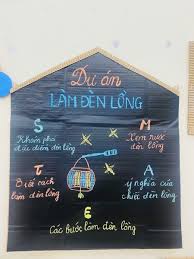 Dự án
LÀM ĐÈN LỒNG
S
Khám phá
đặc điểm đèn lồng
M
Xem rước
đèn lồng
T
Biết cách
làm đèn lồng
A
ý nghĩa của
chiếc đèn lồng
E
Các bước làm đèn lồng